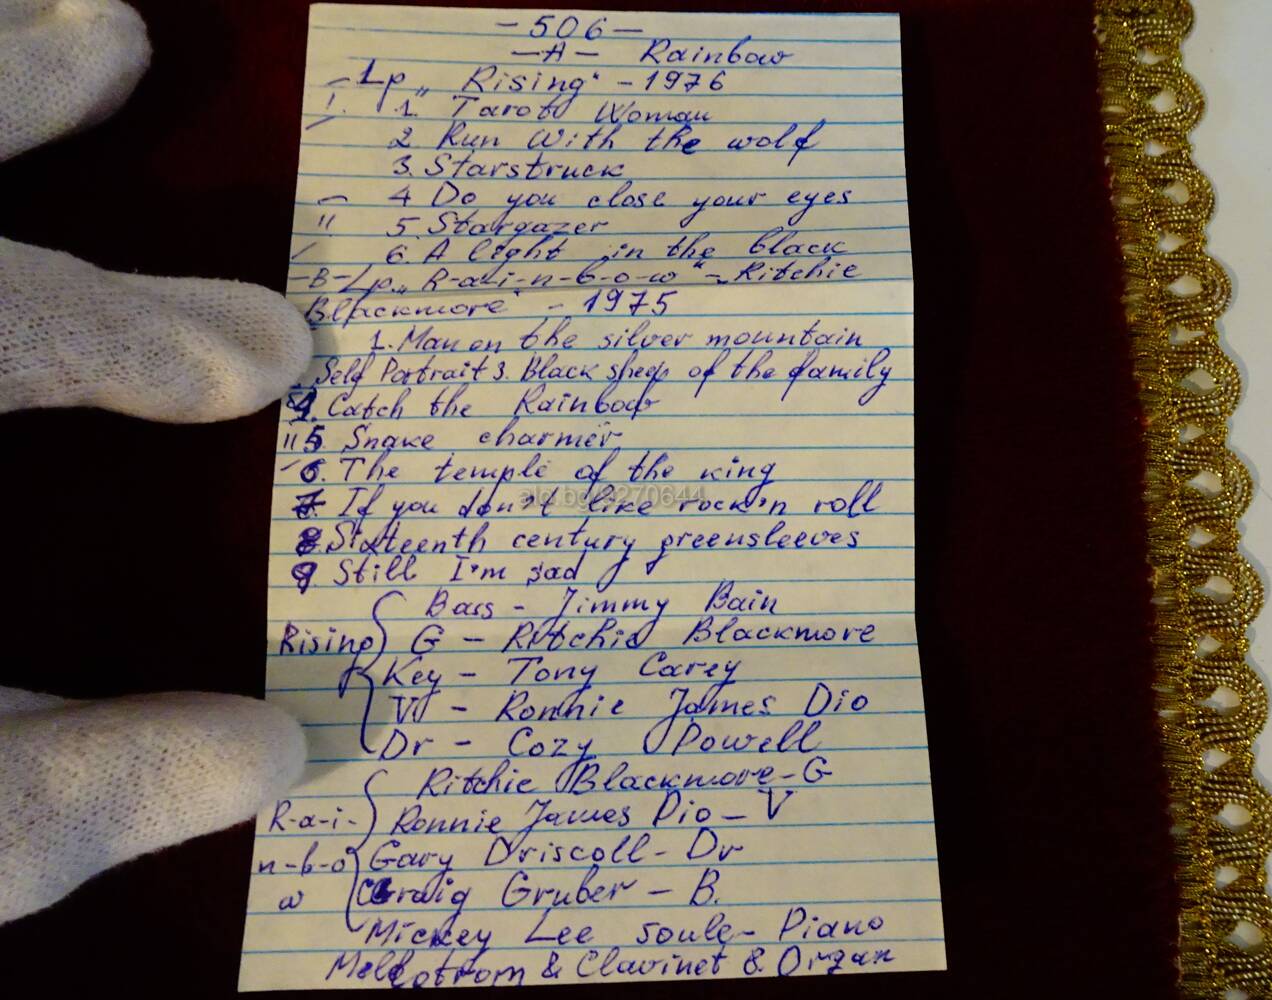 - 506 -
- A - Rainbow
- Lp „ Rising" - 1976
1. Tarot Woman
2 Run With the wolf
3. Starstruck
4 Do you close your eyes
5. Stargazer
6. A light in the black
- B - Lp. „ R-a-i-n-b-o-w" - Ritchie
Blackmore" - 1975
1. Man on the silver mountain
Self Portrait 3. Black sheep of the family
4. Catch the Rainbow
5 Snake charmer
6. The temple of the king
7. If you don't like rock'n roll
alo.bg/9270644
8. Sixteenth century greensleeves
9. Still I'm sad
Bass - Jimmy Bain
Rising G - Ritchie Blackmore
Key - Tony Carey
V - Ronnie James Dio
Dr - Cozy Powell
Ritchie Blackmore - G
R-a-i- Ronnie James Dio - V
n-b-o Gary Driscoll - Dr
w Craig Gruber - B.
Mickey Lee soule - Piano
Mellotrom & Clavinet & Organ